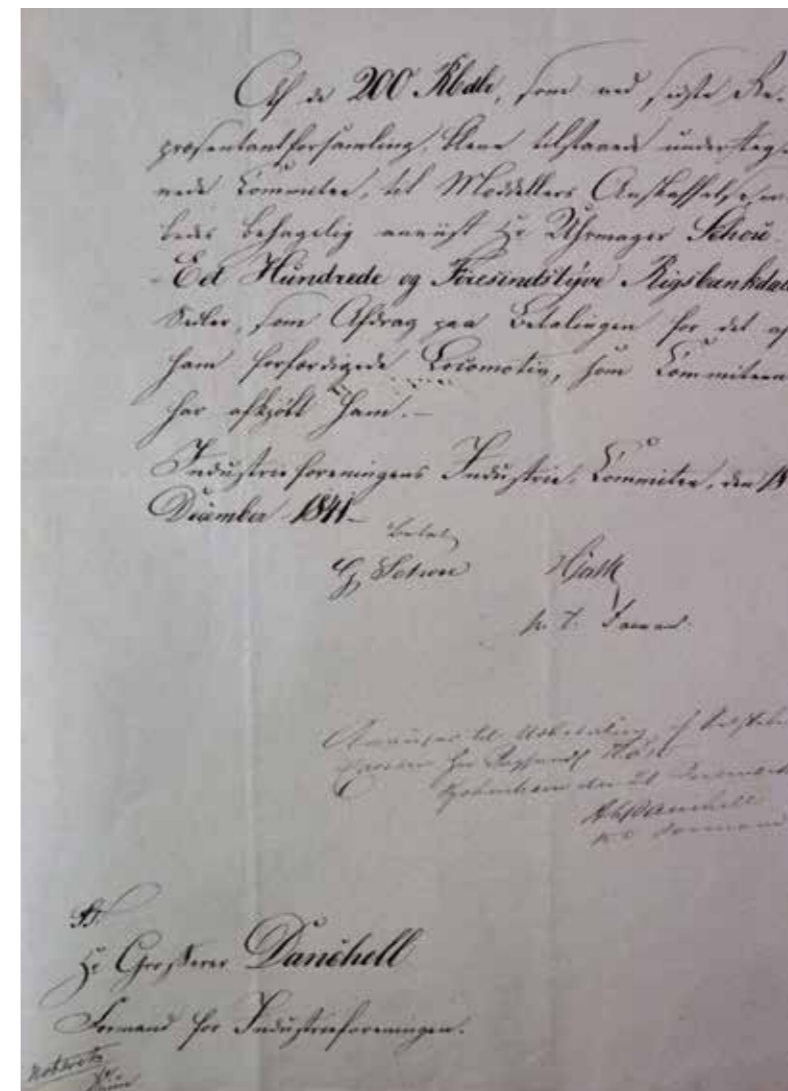 Af de 200 Rbdlr, som ved sidste Re-
præsentantforsamling, bleve tilstaaede underteg-
nede Committee, til Modellers Anskaffelse,
bedes behagelig anviist Hr Uhrmager Schou
- Eet Hundrede og Firesindstyve Rigsbankdaler
Sedler, som Afdrag paa Betalingen for det af
ham forfærdigede Locomotiv, som Committeen
har afkjøbt ham.-
Industrieforeningens Industrie-Committee, den 18
December 1841-
Betalt
G Schou
p. t. Formand.
Anvises til Udbetaling af
Kjøbenhavn den
Danchell
Formand
Til
Hr Grosserer Danchell
Formand for Industrieforeningen.